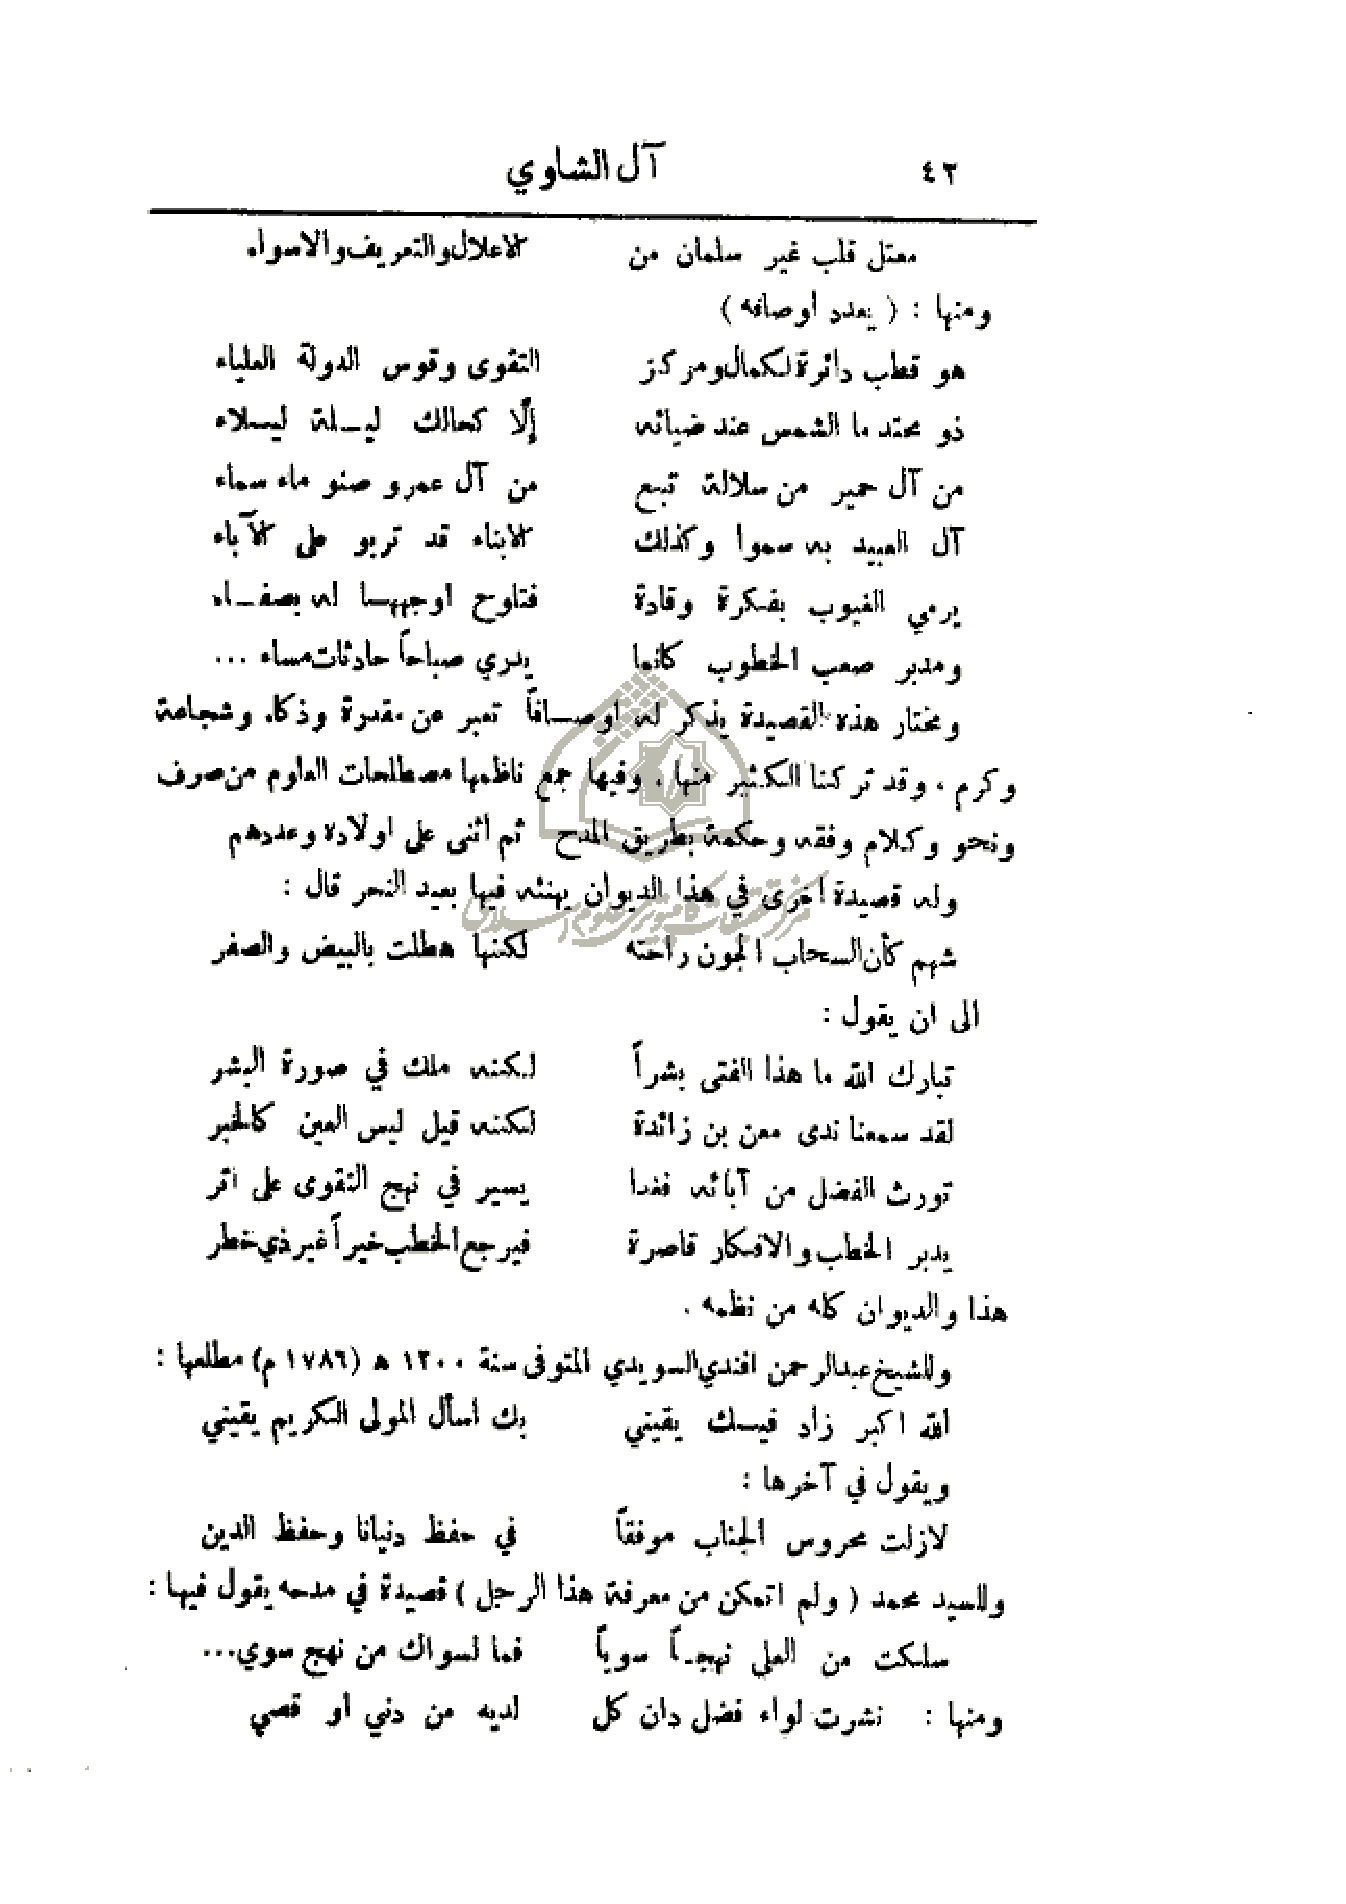 ٤٢ آل الشاوي
معتل قلب غير سلمان من الاعلال والتعريف والاسواء
ومنها : ( يعدد اوصافه )
هو قطب دائرة لكمال ومركز التقوى وقوس الدولة العلياء
ذو محتد ما الشمس عند ضيائه إلّا كحالك ليـلة ليـلاء
من آل حمير من سلالة تبع من آل عمرو صنو ماء سماء
آل العبيد به سموا وكذلك الابناء قد تربو على الآباء
يرمي الغيوب بفكرة وقادة فتلوح اوجهـا له بصفـاء
ومدبر صعب الخطوب كأنما يدري صباحاً حادثات مساء ...
ومختار هذه القصيدة يذكر له اوصـافاً تعبر عن مقدرة وذكاء وشجاعة
وكرم ، وقد تركنا الكثير منها ، وفيها جمع ناظمها مصطلحات العلوم من صرف
ونحو وكلام وفقه وحكمة بطريق المدح ثم أثنى على اولاده وعددهم
وله قصيدة أخرى في هذا الديوان يهنئه فيها بعيد النحر قال :
شهم كأن السحاب الجون راحته لكنها هطلت بالبيض والصفر
الى ان يقول :
تبارك الله ما هذا الفتى بشراً لكنه ملك في صورة البشر
لقد سمعنا ندى معن بن زائدة لكنه قيل ليس العين كالخبر
تورث الفضل من آبائه فغدا يسير في نهج التقوى على اثر
يدبر الخطب والافكار قاصرة فيرجع الخطب خيراً غير ذي خطر
هذا والديوان كله من نظمه .
وللشيخ عبدالرحمن افندي السويدي المتوفى سنة ١٢٠٠ ه (١٧٨٦ م) مطلعها :
الله اكبر زاد فيـك يقيني بك اسأل المولى الكريم يقيني
ويقول في آخرها :
لازلت محروس الجناب موفقاً في حفظ دنيانا وحفظ الدين
وللسيد محمد ( ولم اتمكن من معرفة هذا الرجل ) قصيدة في مدحه يقول فيها :
سلكت من العلى نهجـاً سوياً فما لسواك من نهج سوي...
ومنها : نشرت لواء فضل دان كل لديه من دني أو قصي
مركز تحقيقات كامپيوترى علوم اسلامى